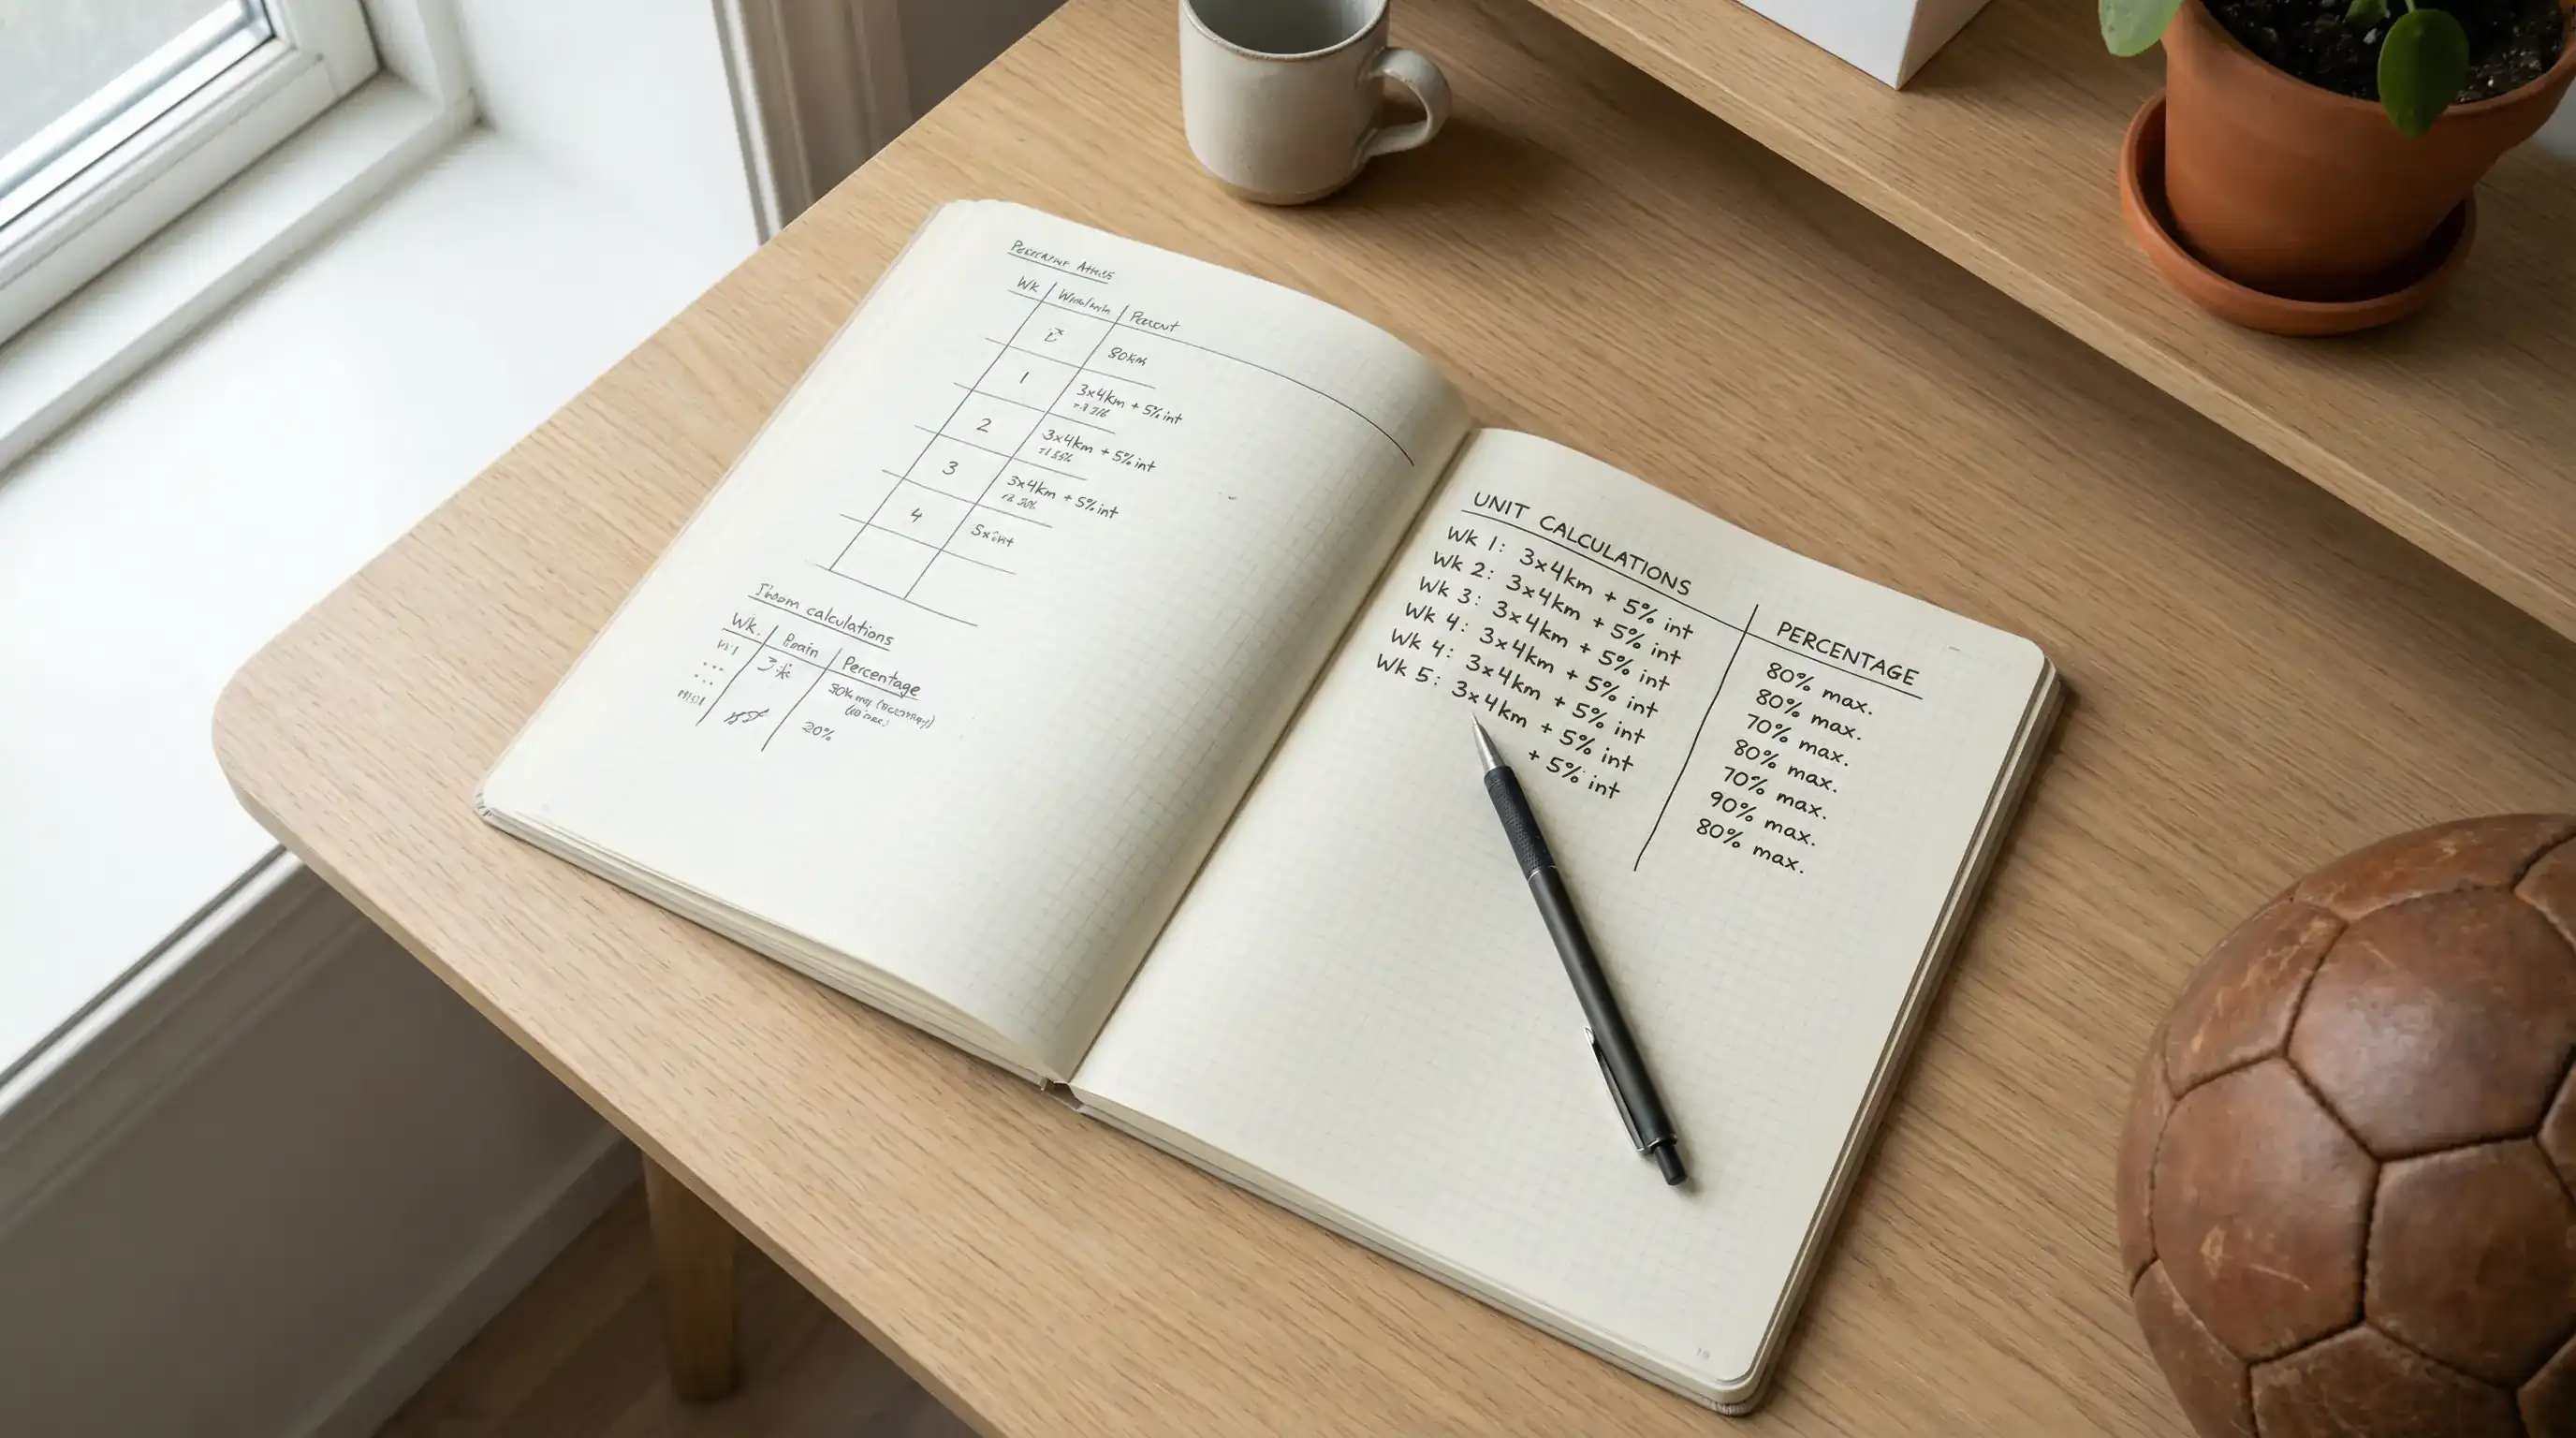 Wk Percent
80km
1 3x4km + 5% int
2 3x4km + 5% int
3 3x4km + 5% int
4
calculations
Wk. Percentage
20%
UNIT CALCULATIONS PERCENTAGE
Wk 1: 3x4km + 5% int 80% max.
Wk 2: 3x4km + 5% int 80% max.
Wk 3: 3x4km + 5% int 70% max.
Wk 4: 3x4km + 5% int 80% max.
Wk 4: 3x4km + 5% int 70% max.
Wk 5: 3x4km + 5% int 90% max.
+ 5% int 80% max.